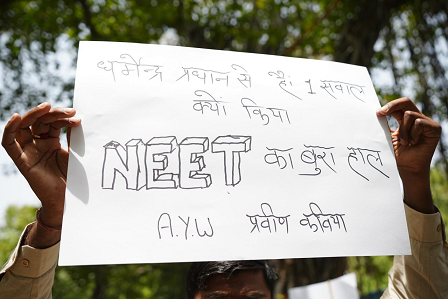 धर्मेन्द्र प्रधान से है 1 सवाल
क्यों किया
NEET का बुरा हाल
A.Y.W प्रवीण कनिया